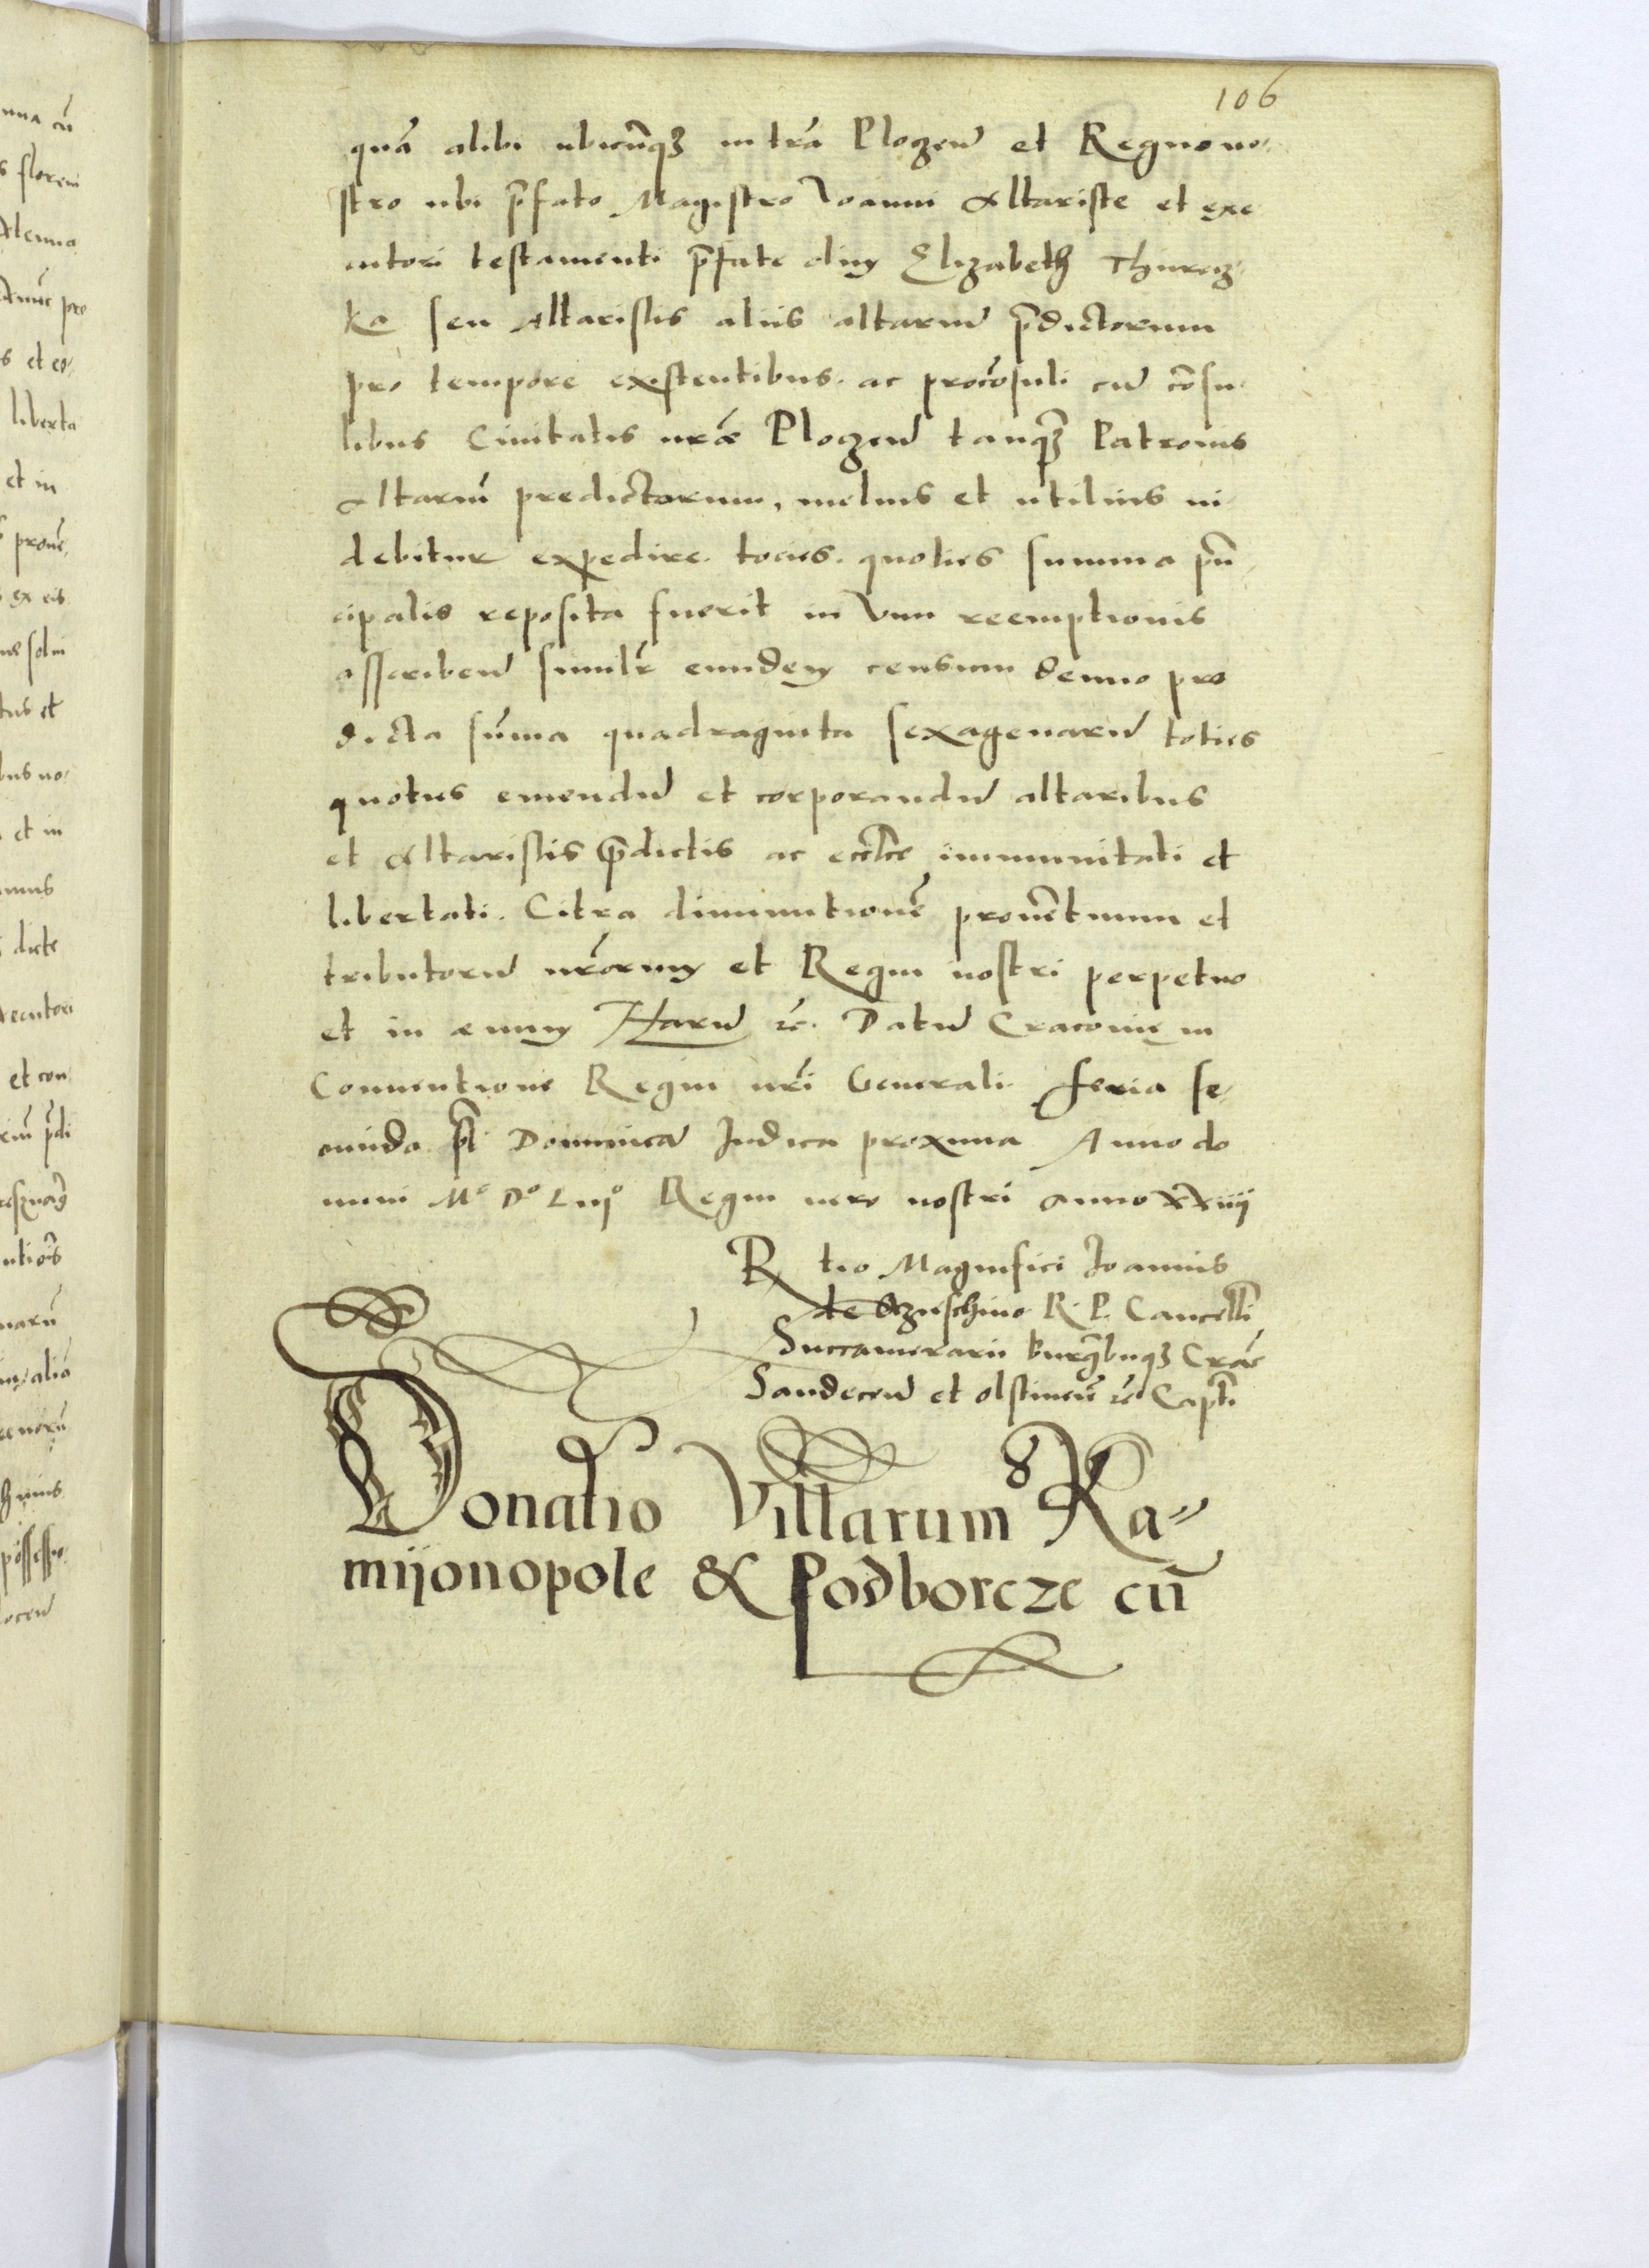 106
quā alibi ubicūqꝫ in tr̄a Ploczeñ et Regno no-
stro ubi p̄fato Magistro Ioanni Altariste et exe
cutori testamenti p̄fate olim Elizabeth Thurcz-
ka seu Altaristis aliis altariū p̄dictorum
pro tempore existentibus. ac procōsuli cū cōsu-
libus Ciuitatis nr̄æ Ploczeñ tanqꝫ Patronis
Altariū predictorum, melius et utilius ui-
debitur expedire. tocies. quoties summa prin
cipalis reposita fuerit in vim reemptionis
asscribeñ similr̄ eundem censum denuo pro
dicta sūma quadraginta sexagenarū toties
quoties emendū et corporandū altaribus
et Altaristis p̄dictis ac eccl̄ce immunitati et
libertati. Citra diminutionē prouētuum et
tributorū nr̄orum et Regni nostri perpetuo
et in æuum Harū ꝛc. Datū Cracoviæ in
Conuentione Regni nr̄i Generali feria se-
cunda p̄t Dominicā Iudica proxima Anno do
mini Mº Dº Liijº Regni uero nostri anno XXiiij
R tio Magnifici Ioannis
de Oczieschino R. P. Cancelłi
Succamerarii burg̃buqꝫ Crac̃
Sandeceñ et olstineñ ꝛc Capt̃i
Donatio Villarum Ka-
mijonopole & Podborcze cū